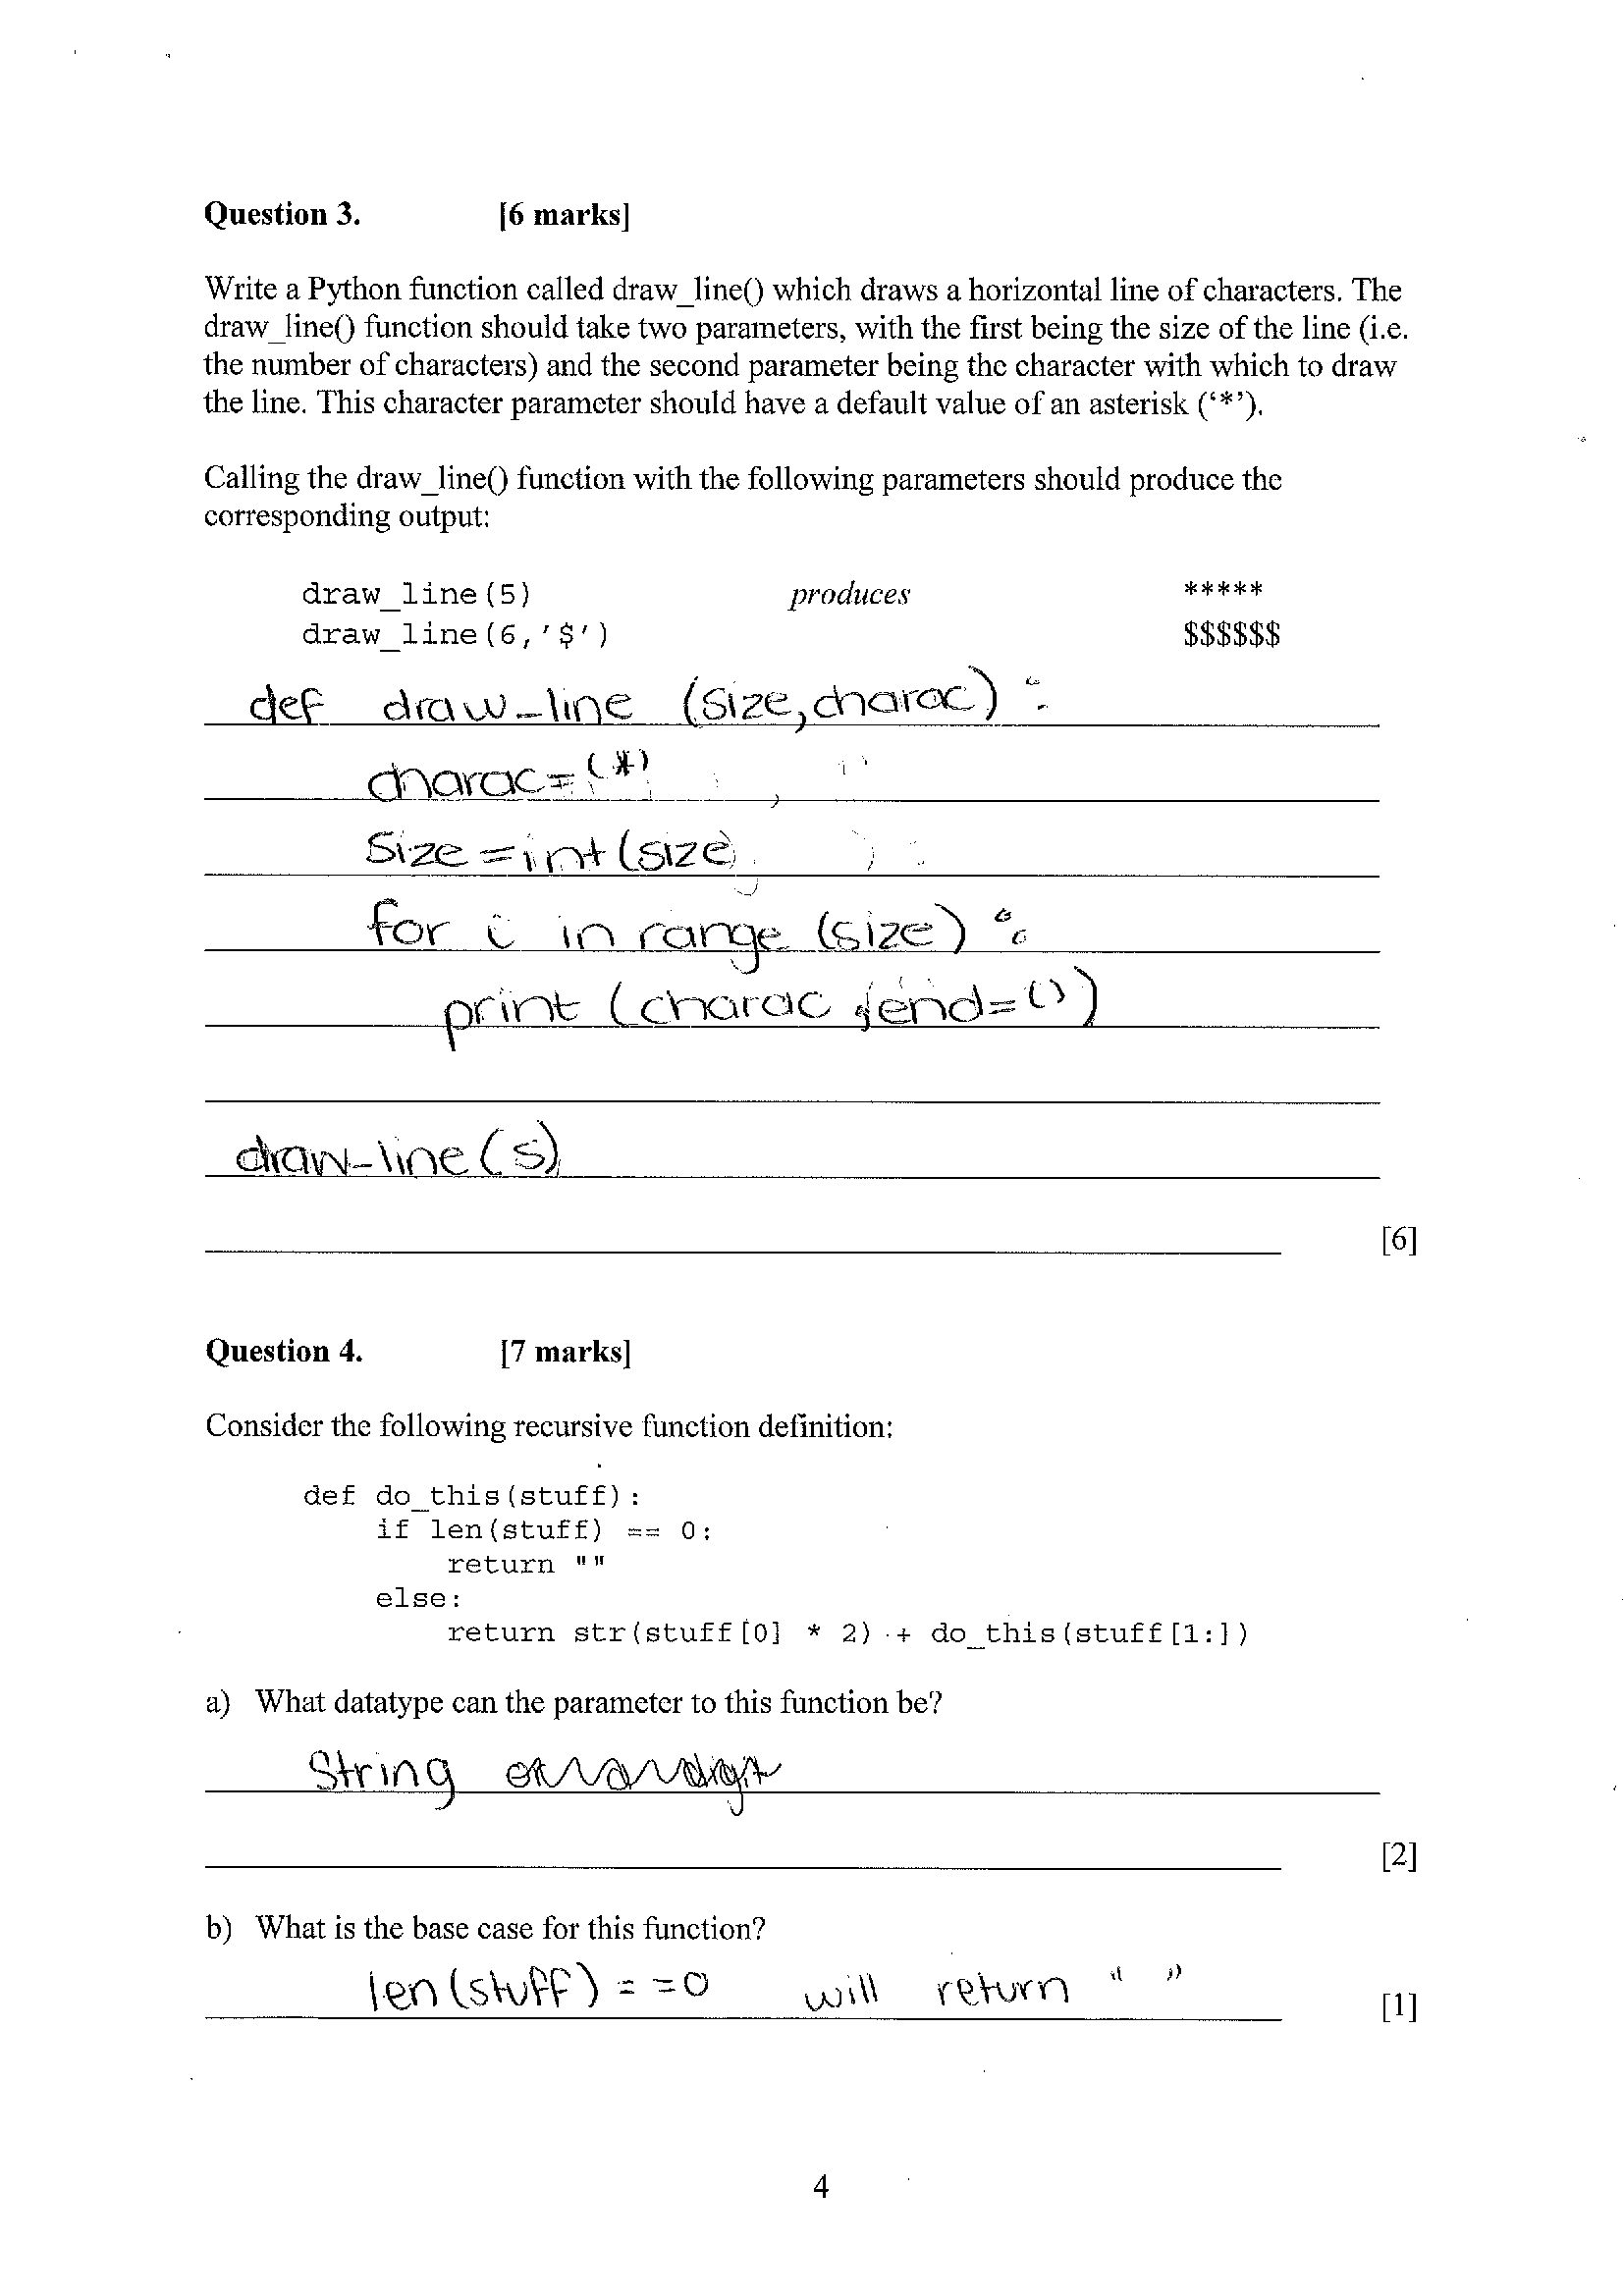 Question 3. [6 marks]
Write a Python function called draw_line() which draws a horizontal line of characters. The
draw_line() function should take two parameters, with the first being the size of the line (i.e.
the number of characters) and the second parameter being the character with which to draw
the line. This character parameter should have a default value of an asterisk (‘*’).
Calling the draw_line() function with the following parameters should produce the
corresponding output:
draw_line(5) produces *****
draw_line(6,'$') $$$$$$
def draw_line (size,charac) :
charac=‘*’
Size=int(size)
for i in range (size) :
print (charac ,end=‘’)
draw_line(5)
[6]
Question 4. [7 marks]
Consider the following recursive function definition:
def do_this(stuff):
if len(stuff) == 0:
return ""
else:
return str(stuff[0] * 2) + do_this(stuff[1:])
a) What datatype can the parameter to this function be?
String
[2]
b) What is the base case for this function?
len(stuff) = =0 will return “ ”
[1]
4